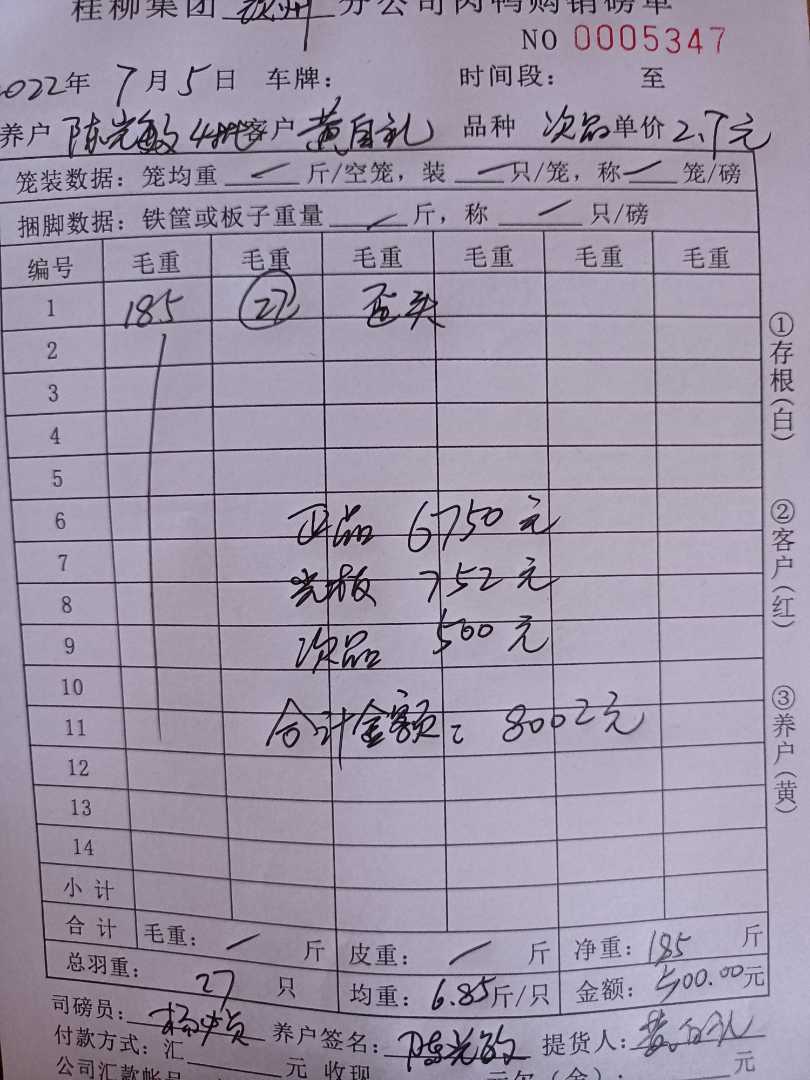 桂柳集团 钦州 分公司肉鸭购销磅单
NO 0005347
2022年 7月5日 车牌： 时间段： 至
养户 陈光敏 4批 客户 黄自礼 品种 次品 单价 2.7元
笼装数据：笼均重 — 斤/空笼，装 — 只/笼，称 — 笼/磅
捆脚数据：铁筐或板子重量 — 斤，称 — 只/磅
编号 毛重 毛重 毛重 毛重 毛重 毛重
1 185 27 歪头
2
3
4
5
6 正品 6750元
7 光板 752元
8
9 次品 500元
10
11 合计金额： 8002元
12
13
14
小计
合计 毛重： — 斤 皮重： — 斤 净重： 185 斤
总羽重： 27 只 均重： 6.85斤/只 金额： 500.00元
司磅员： 养户签名： 陈光敏 提货人： 黄自礼
付款方式：汇 元 收现 元欠（余）： 元
公司汇款帐号
①存根（白）
②客户（红）
③养户（黄）